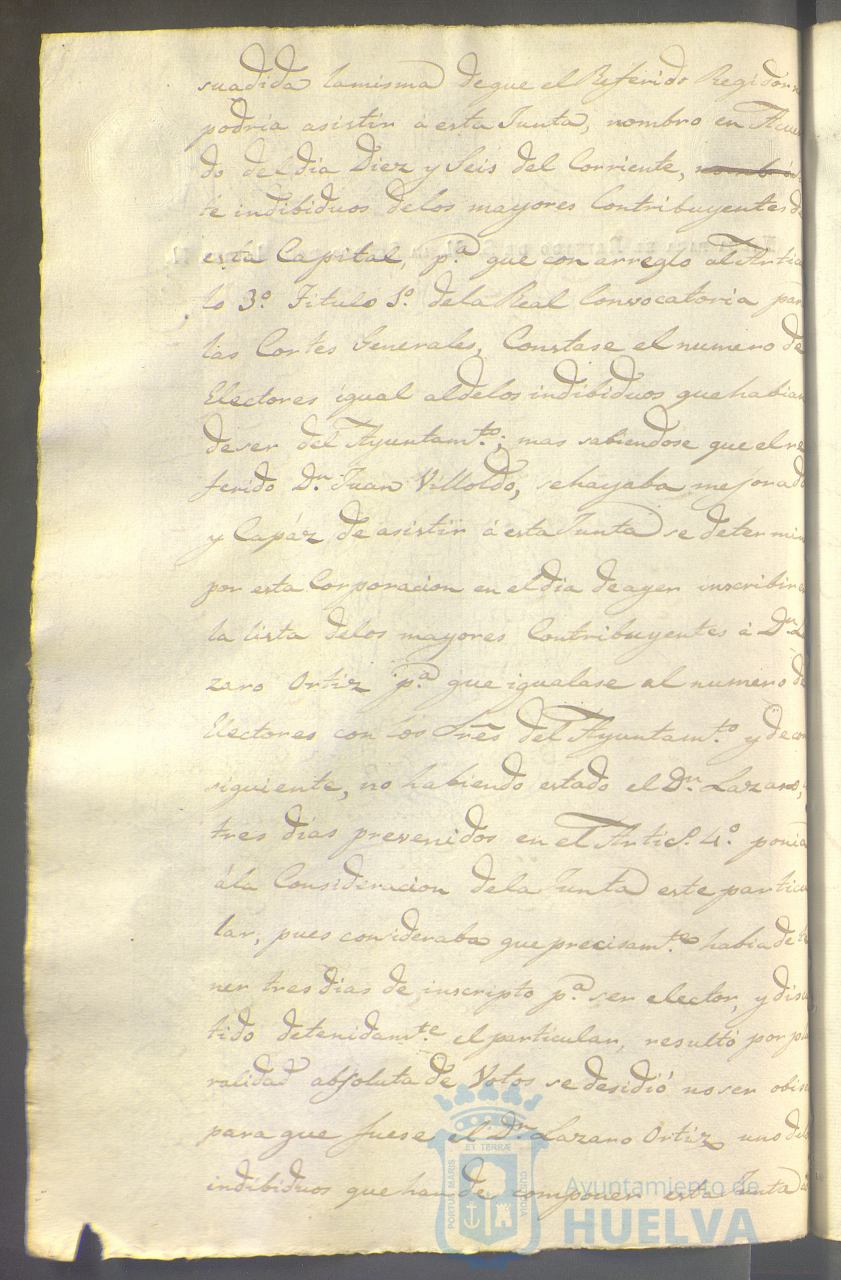 suadida lamisma deque el Referido Regidor n
podria asistir á esta Junta, nombro en Acuer
do del dia Diez y Seis del Corriente,
te indibiduos delos mayores Contribuyentes de
esta Capital, p.ª que con arreglo al Artic
lo 3.º Titulo 1.º dela Real Convocatoria par
las Cortes Generales, Constase el numero de
Electores igual aldelos indibiduos que habian
deser del Ayuntam.to; mas sabiendose que el re
ferido D.n Juan Villoldo, sehayaba mejorado
y Capáz de asistir á esta Junta se determin
por esta Corporacion en el dia de ayer inscribir e
la lista delos mayores Contribuyentes á D.n La
zaro Ortiz p.ª que igualase al numero de
Electores con los Sres del Ayuntam.to y de con
siguiente, no habiendo estado el D.n Lazaro,
tres dias prevenidos en el Artic.º 4.º ponia
ála Consideracion dela Junta este particu
lar, pues consideraba que precisam.te habia de te
ner tres dias de inscripto p.ª ser elector, y discu
tido detenidam.te el particular, resultó por plu
ralidad absoluta de Votos se desidió no ser obice
para que fuese el D.n Lazaro Ortiz uno delos
indibiduos que han de componer esta Junta
ET TERRÆ
PORTUS MARIS
CUSTODIA
Ayuntamiento de
HUELVA